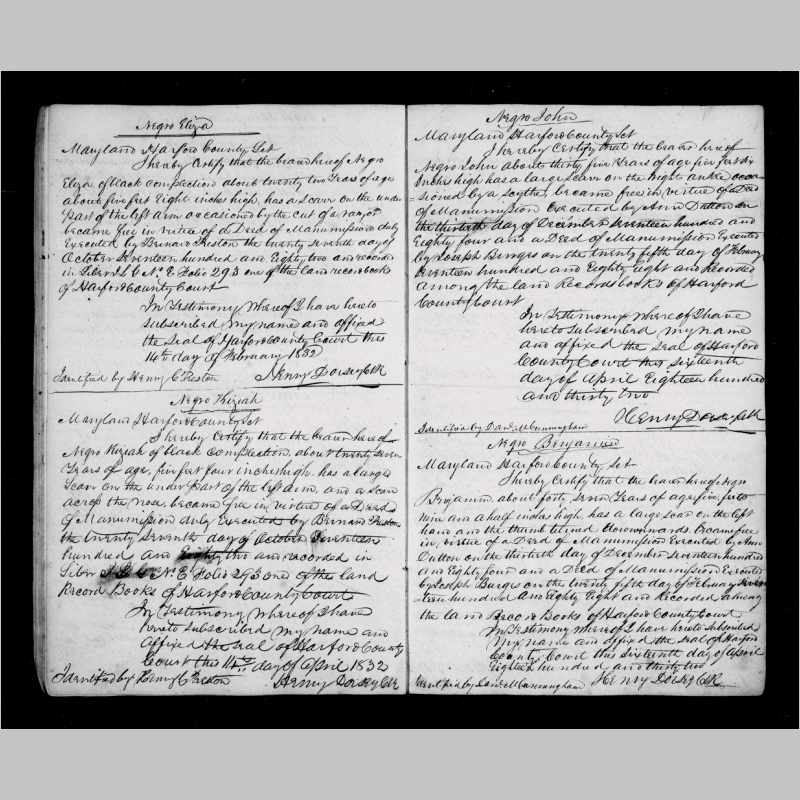 Negro Eliza
Maryland Harford County Sct
I hereby Certify that the bearer hereof Negro
Eliza of black complection about twenty two Years of age
about five feet Eight inches high, has a scar on the under
Part of the left arm occasioned by the cut of a razor
became free in virtue of a Deed of Manumission duly
Executed by Bernard Preston the twenty seventh day of
October seventeen hundred and Eighty two and recorded
in Liber J L G No. E Folio 293 one of the land record books
of Harford County Court
In Testimony whereof I have hereto
subscribed my name and affixed
the Seal of Harford County Court this
14th day of February 1832
Identified by Henry C Preston Henry Dorsey Clk
Negro Kiziah
Maryland Harford County Sct
I hereby Certify that the bearer hereof
Negro Kiziah of black complection, about twenty seven
Years of age, five feet four inches high, has a large
Scar on the under part of the left arm, and a scar
across the nose, became free in virtue of a Deed
of Manumission duly Executed by Bernard Preston
the twenty seventh day of October Seventeen
hundred and Eighty two and recorded in
Liber J L G No. E Folio 293 one of the land
Record Books of Harford County Court
In Testimony whereof I have
hereto subscribed my name and
affixed the Seal of Harford County
Court this 14th day of April 1832
Identified by Henry C Preston Henry Dorsey Clk
Negro John
Maryland Harford County Sct
I hereby Certify that the bearer hereof
Negro John about thirty five Years of age five feet six
Inches high has a large scar on the right ankle occa-
=sioned by a scythe became free in virtue of a Deed
of Manumission Executed by Ann Dutton on
the thirtieth day of December seventeen hundred and
Eighty four and a Deed of Manumission Executed
by Joseph Burges on the twenty fifth day of February
seventeen hundred and Eighty Eight and Recorded
among the land Records book of Harford
County Court
In Testimony whereof I have
hereto Subscribed my name
and affixed the Seal of Harford
County Court this Sixteenth
day of April Eighteen hundred
and thirty two
Henry Dorsey Clk
Identified by David M Cunningham
Negro Benjamin
Maryland Harford County Sct
I hereby Certify that the bearer hereof Negro
Benjamin about forty seven Years of age five feet
nine and a half inches high, has a large scar on the left
hand and the thumb turned downwards became free
in virtue of a Deed of Manumission Executed by Ann
Dutton on the thirtieth day of December Seventeen hundred
and Eighty four and a Deed of Manumission Executed
by Joseph Burges on the twenty fifth day of February seven-
=teen hundred and Eighty Eight and Recorded among
the land Record Books of Harford County Court
In Testimony whereof I have hereto subscribed
my name and affixed the Seal of Harford
County Court this Sixteenth day of April
Eighteen hundred and thirty two
Identified by David M Cunningham Henry Dorsey Clk